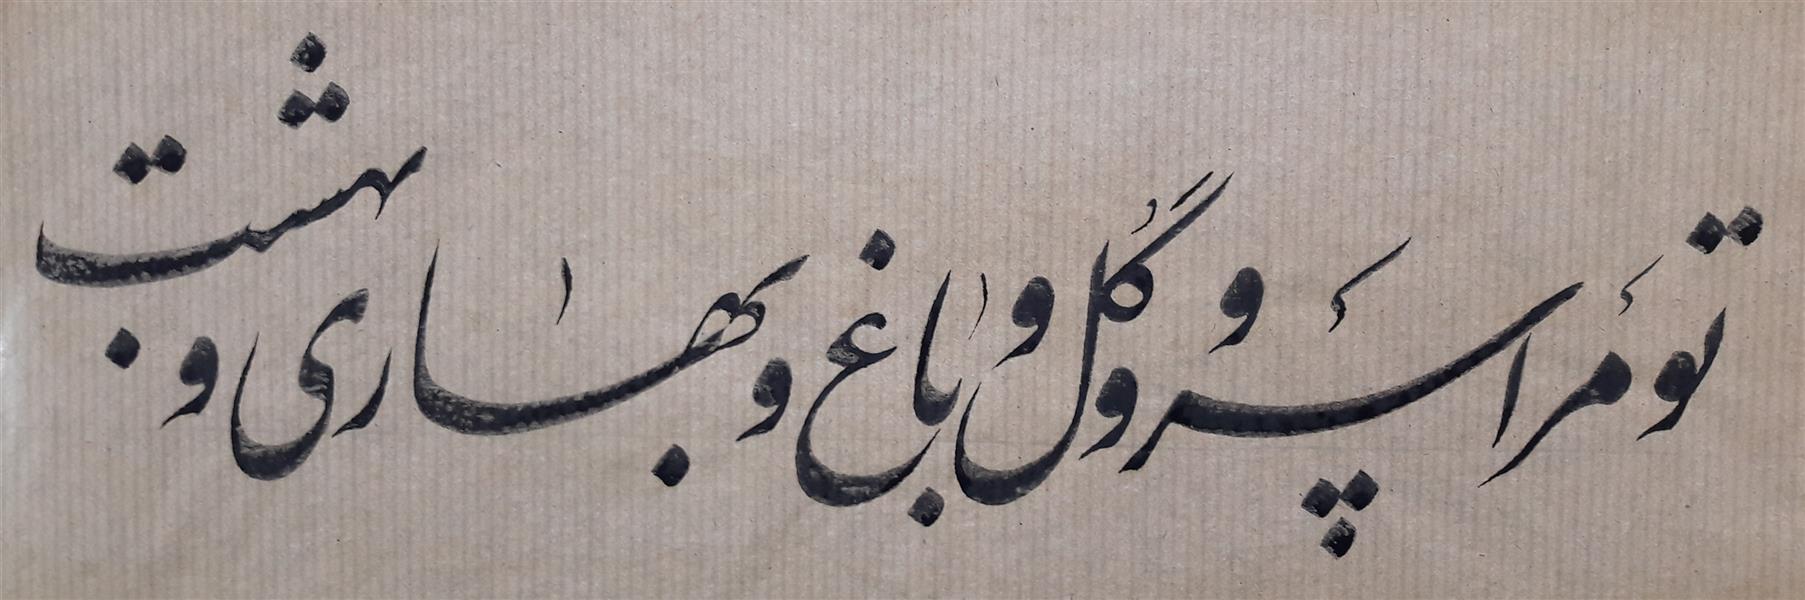 تو مرا سرو و گل و باغ و بهاری و بهشت